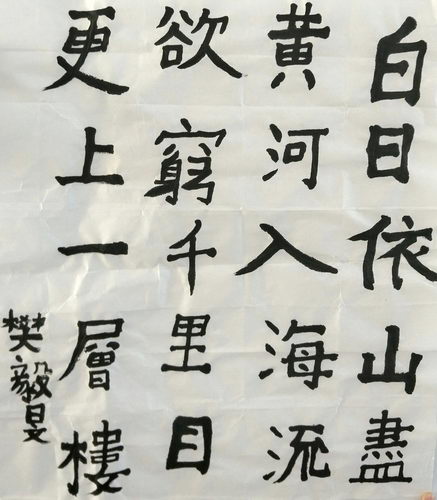 白日依山盡
黄河入海流
欲窮千里目
更上一層樓
樊毅旻